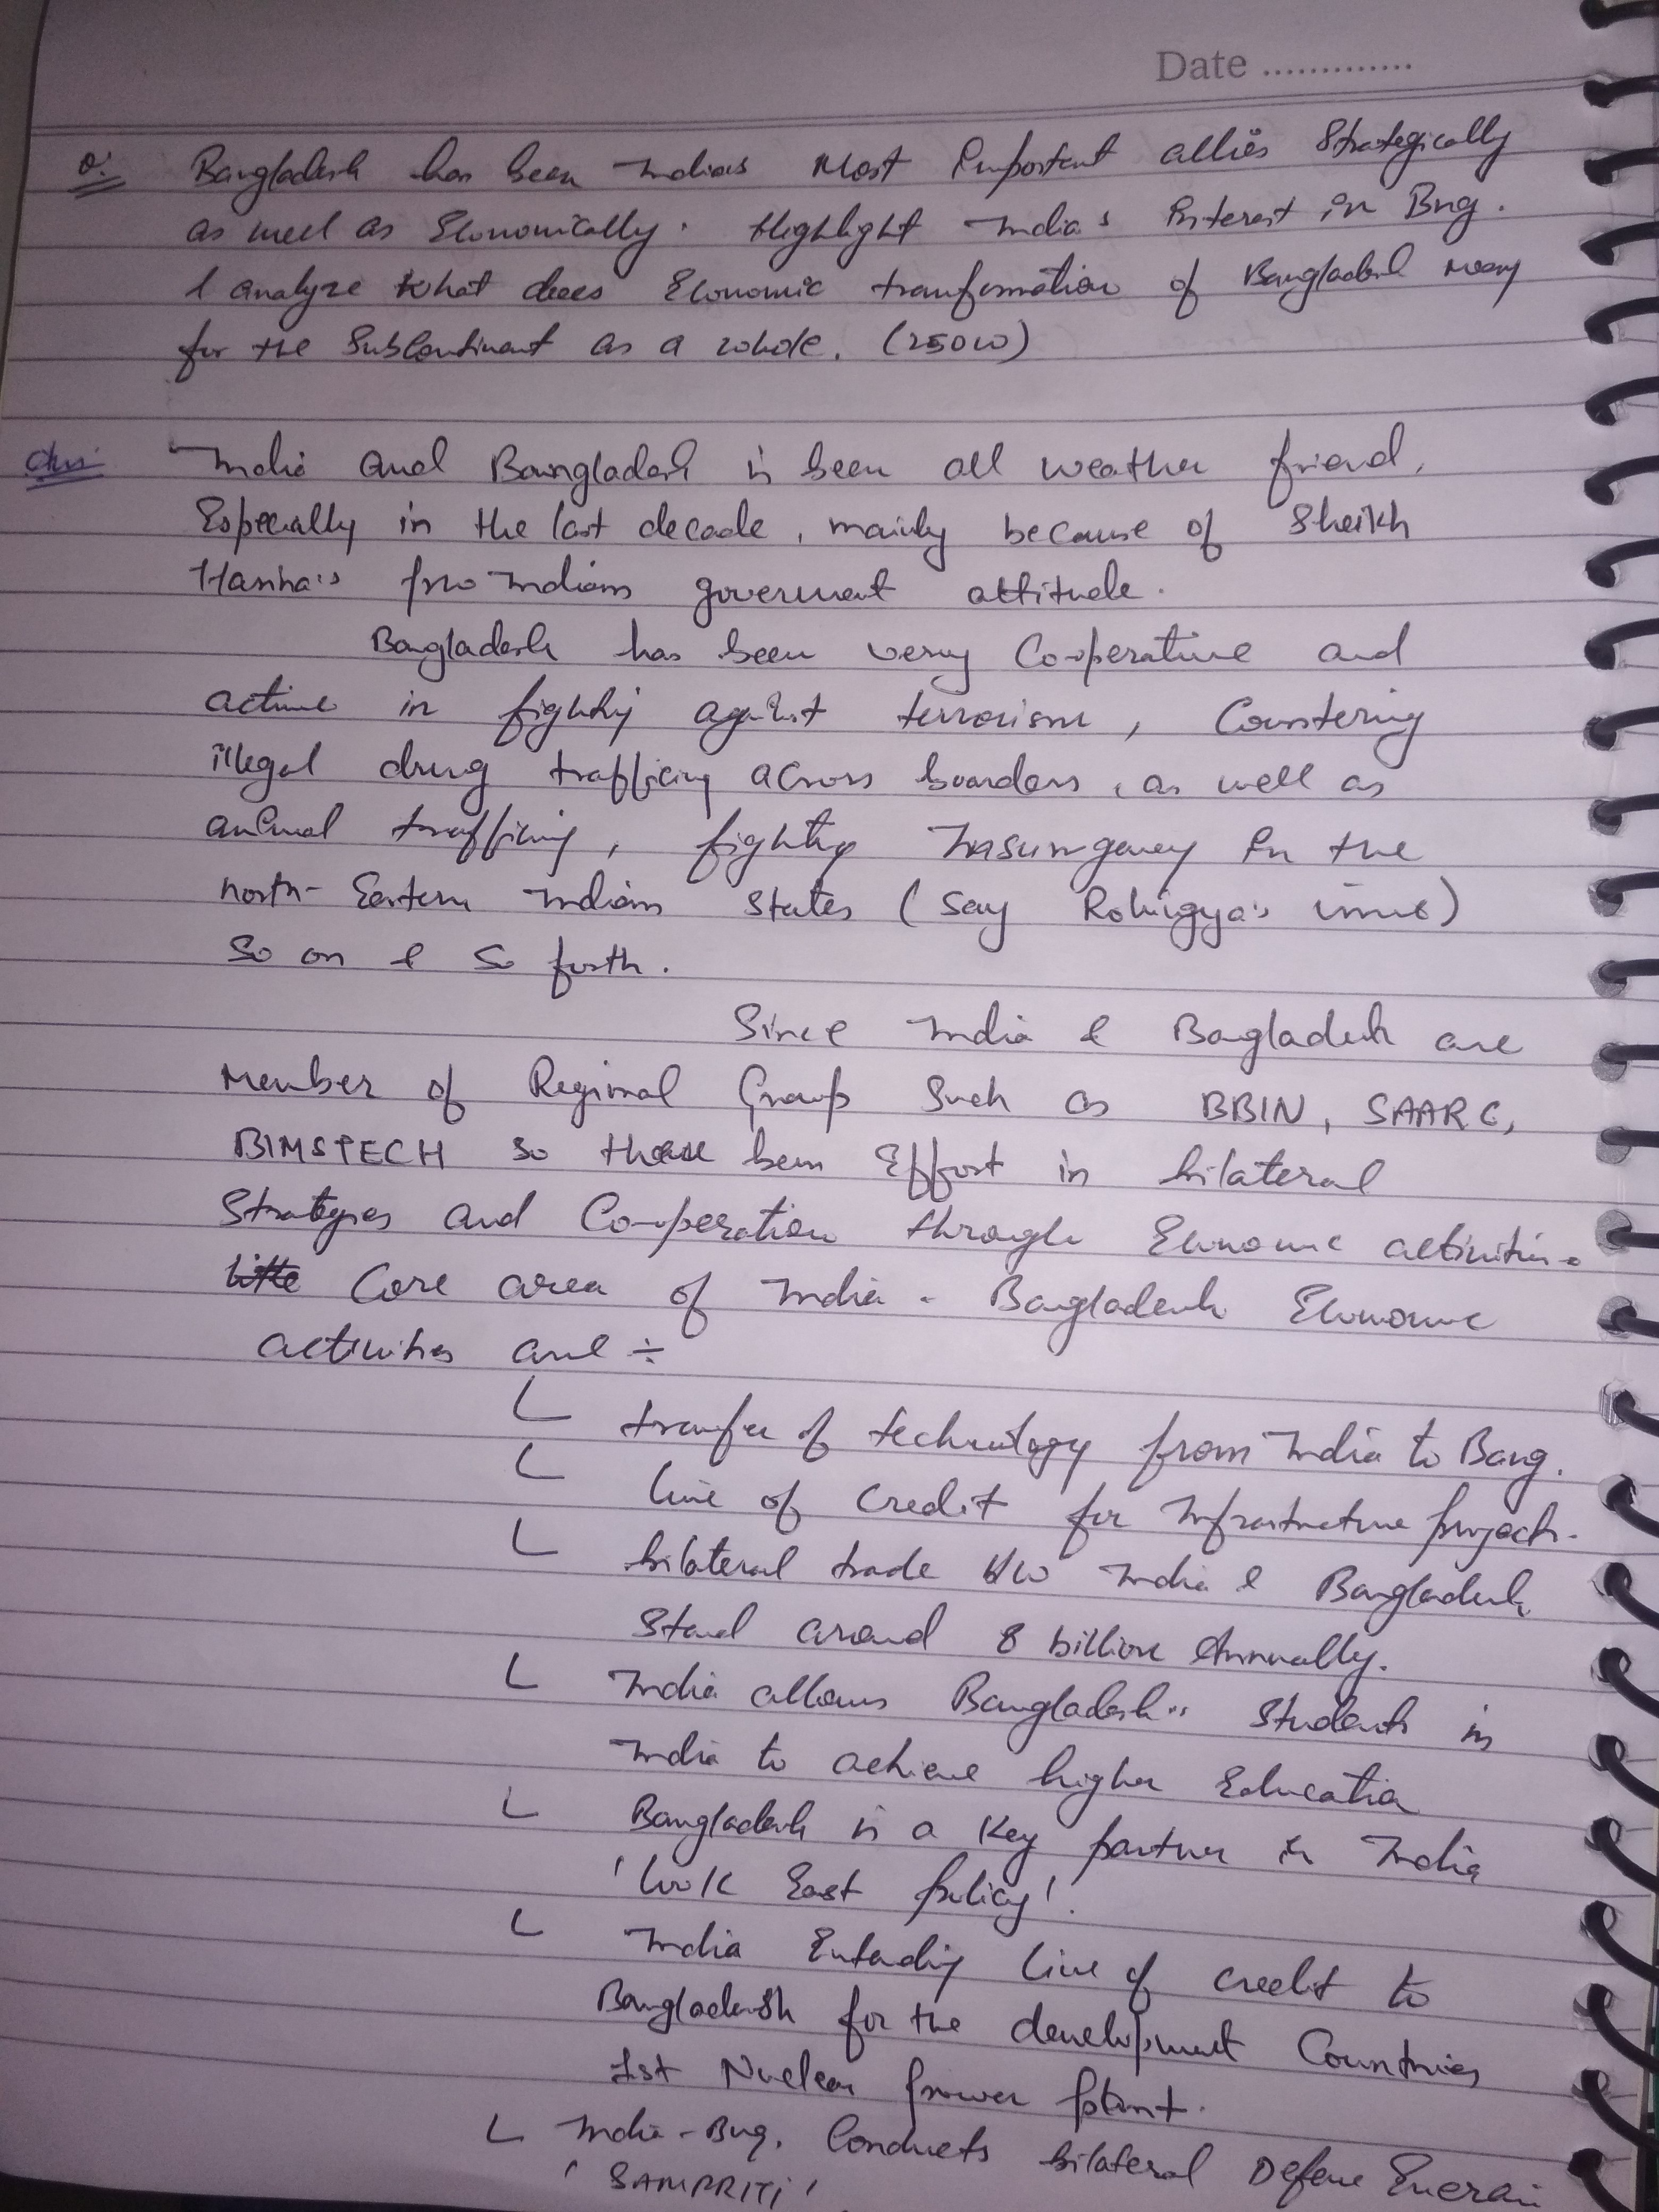 Date ..............
Q. Bangladesh has been India's Most Important allies Strategically
as well as Economically. Highlight India's Interest in Bng.
& analyze what does Economic transformation of Bangladesh mean
for the Subcontinent as a whole. (250w)
Ans: India and Bangladesh is been all weather friend,
Especially in the last decade, mainly because of Sheikh
Hasina's pro Indians goverment attitude.
Bangladesh has been very Co-operative and
active in fighting against terrorism, Countering
illegal drug trafficing across boarders, as well as
animal trafficing, fighting Insurgency in the
north-Eastern Indian States (say Rohigya's issue)
So on & So forth.
Since India & Bangladesh are
Member of Regional Group Such as BBIN, SAARC,
BIMSTECH so been Effort in bilateral
Strategies and Co-operation through Economic activities.
Core area of India - Bangladesh Economic
activities are ÷
transfer of technology from India to Bang.
line of credit for Infrastructure project.
bilateral trade b/w India & Bangladesh
Stand around 8 billion Annually.
India allows Bangladesh's Students in
India to achieve higher Education
Bangladesh is a Key partner in India
'look East policy'.
India Extending line of credit to
Bangladesh for the development Countries
1st Nuclear power plant.
India-Bng. Conducts bilateral Defence Exercise
'SAMPRITI'